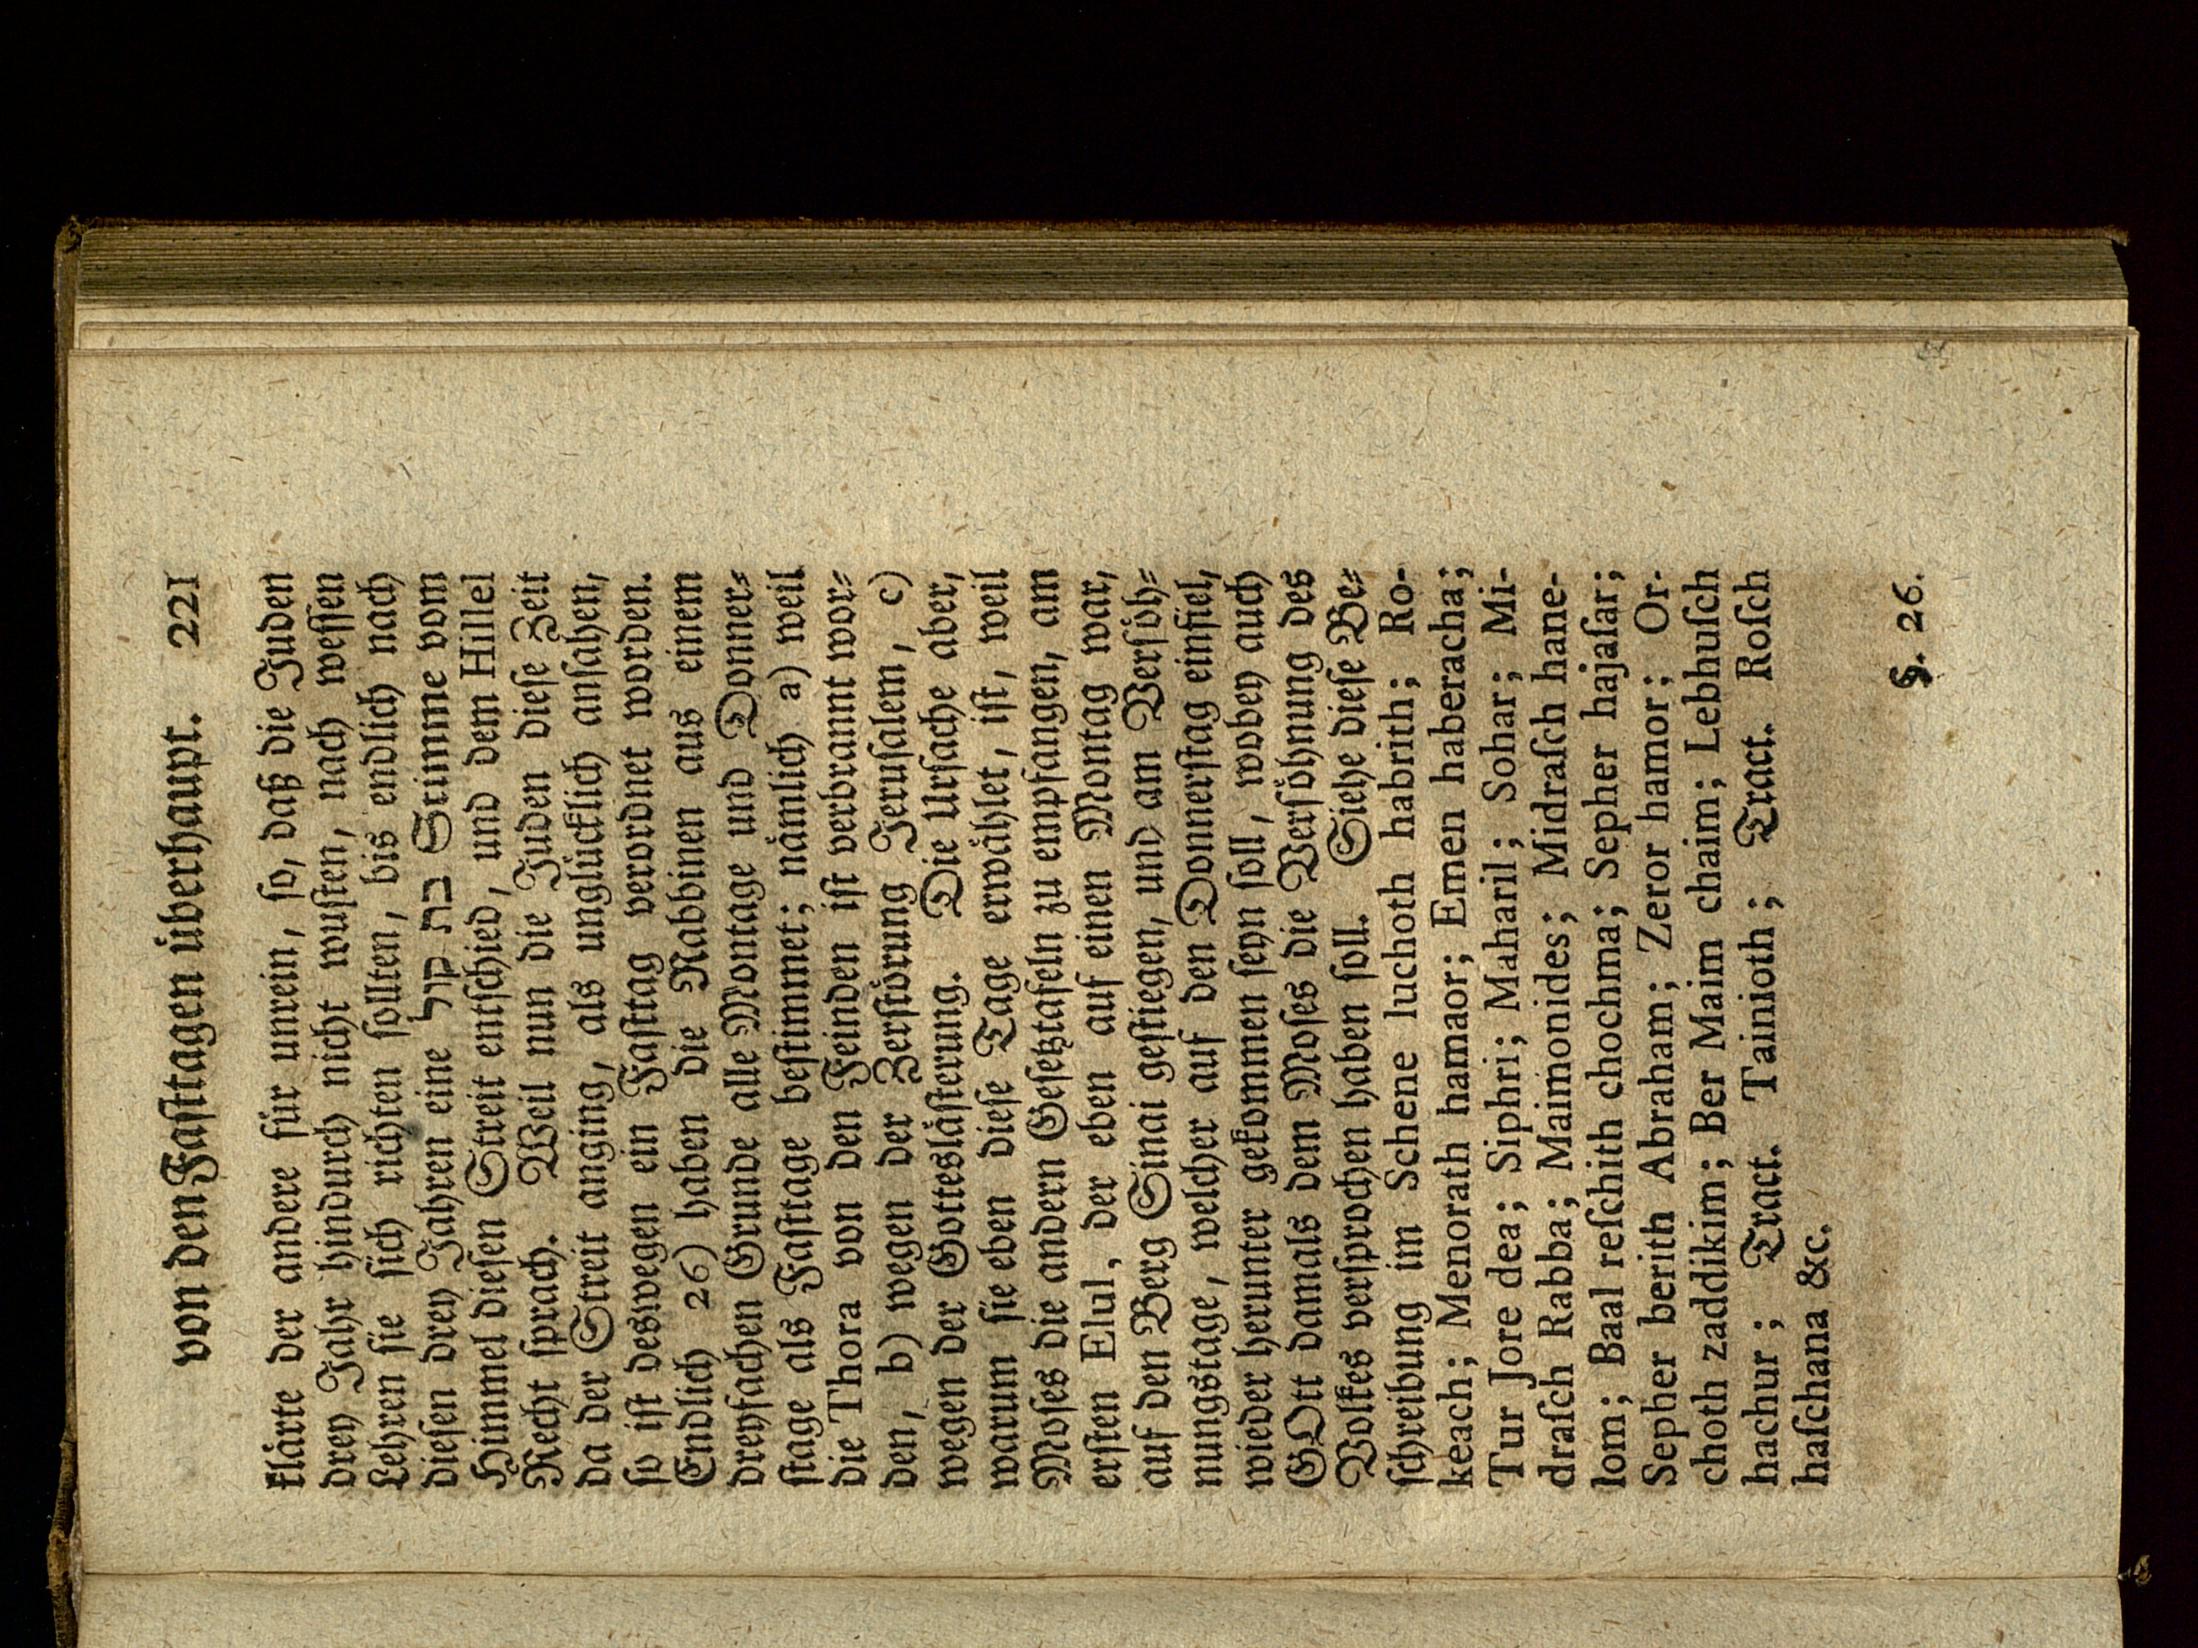 von den Fasttagen überhaupt. 221
klärte der andere für unrein, so, daß die Juden
drey Jahr hindurch nicht wusten, nach wessen
Lehren sie sich richten sollten, bis endlich nach
diesen drey Jahren eine בת קול Stimme vom
Himmel diesen Streit entschied, und dem Hillel
Recht sprach. Weil nun die Juden diese Zeit
da der Streit anging, als unglücklich ansahen,
so ist deswegen ein Fasttag verordnet worden.
Endlich 26) haben die Rabbinen aus einem
dreyfachen Grunde alle Montage und Donner⸗
stage als Fasttage bestimmet; nämlich a) weil
die Thora von den Feinden ist verbrannt wor⸗
den, b) wegen der Zerstörung Jerusalem, c)
wegen der Gotteslästerung. Die Ursache aber,
warum sie eben diese Tage erwählet, ist, weil
Moses die andern Gesetztafeln zu empfangen, am
ersten Elul, der eben auf einen Montag war,
auf den Berg Sinai gestiegen, und am Versöh⸗
nungstage, welcher auf den Donnerstag einfiel,
wieder herunter gekommen seyn soll, wobey auch
GOtt damals dem Moses die Versöhnung des
Volkes versprochen haben soll. Siehe diese Be⸗
schreibung im Schene luchoth habrith; Ro-
keach; Menorath hamaor; Emen haberacha;
Tur Jore dea; Siphri; Maharil; Sohar; Mi-
draſch Rabba; Maimonides; Midraſch hane-
lom; Baal reſchith chochma; Sepher hajaſar;
Sepher berith Abraham; Zeror hamor; Or-
choth zaddikim; Ber Maim chaim; Lebhuſch
hachur; Tract. Tainioth; Tract. Roſch
haſchana &c.
§. 26.